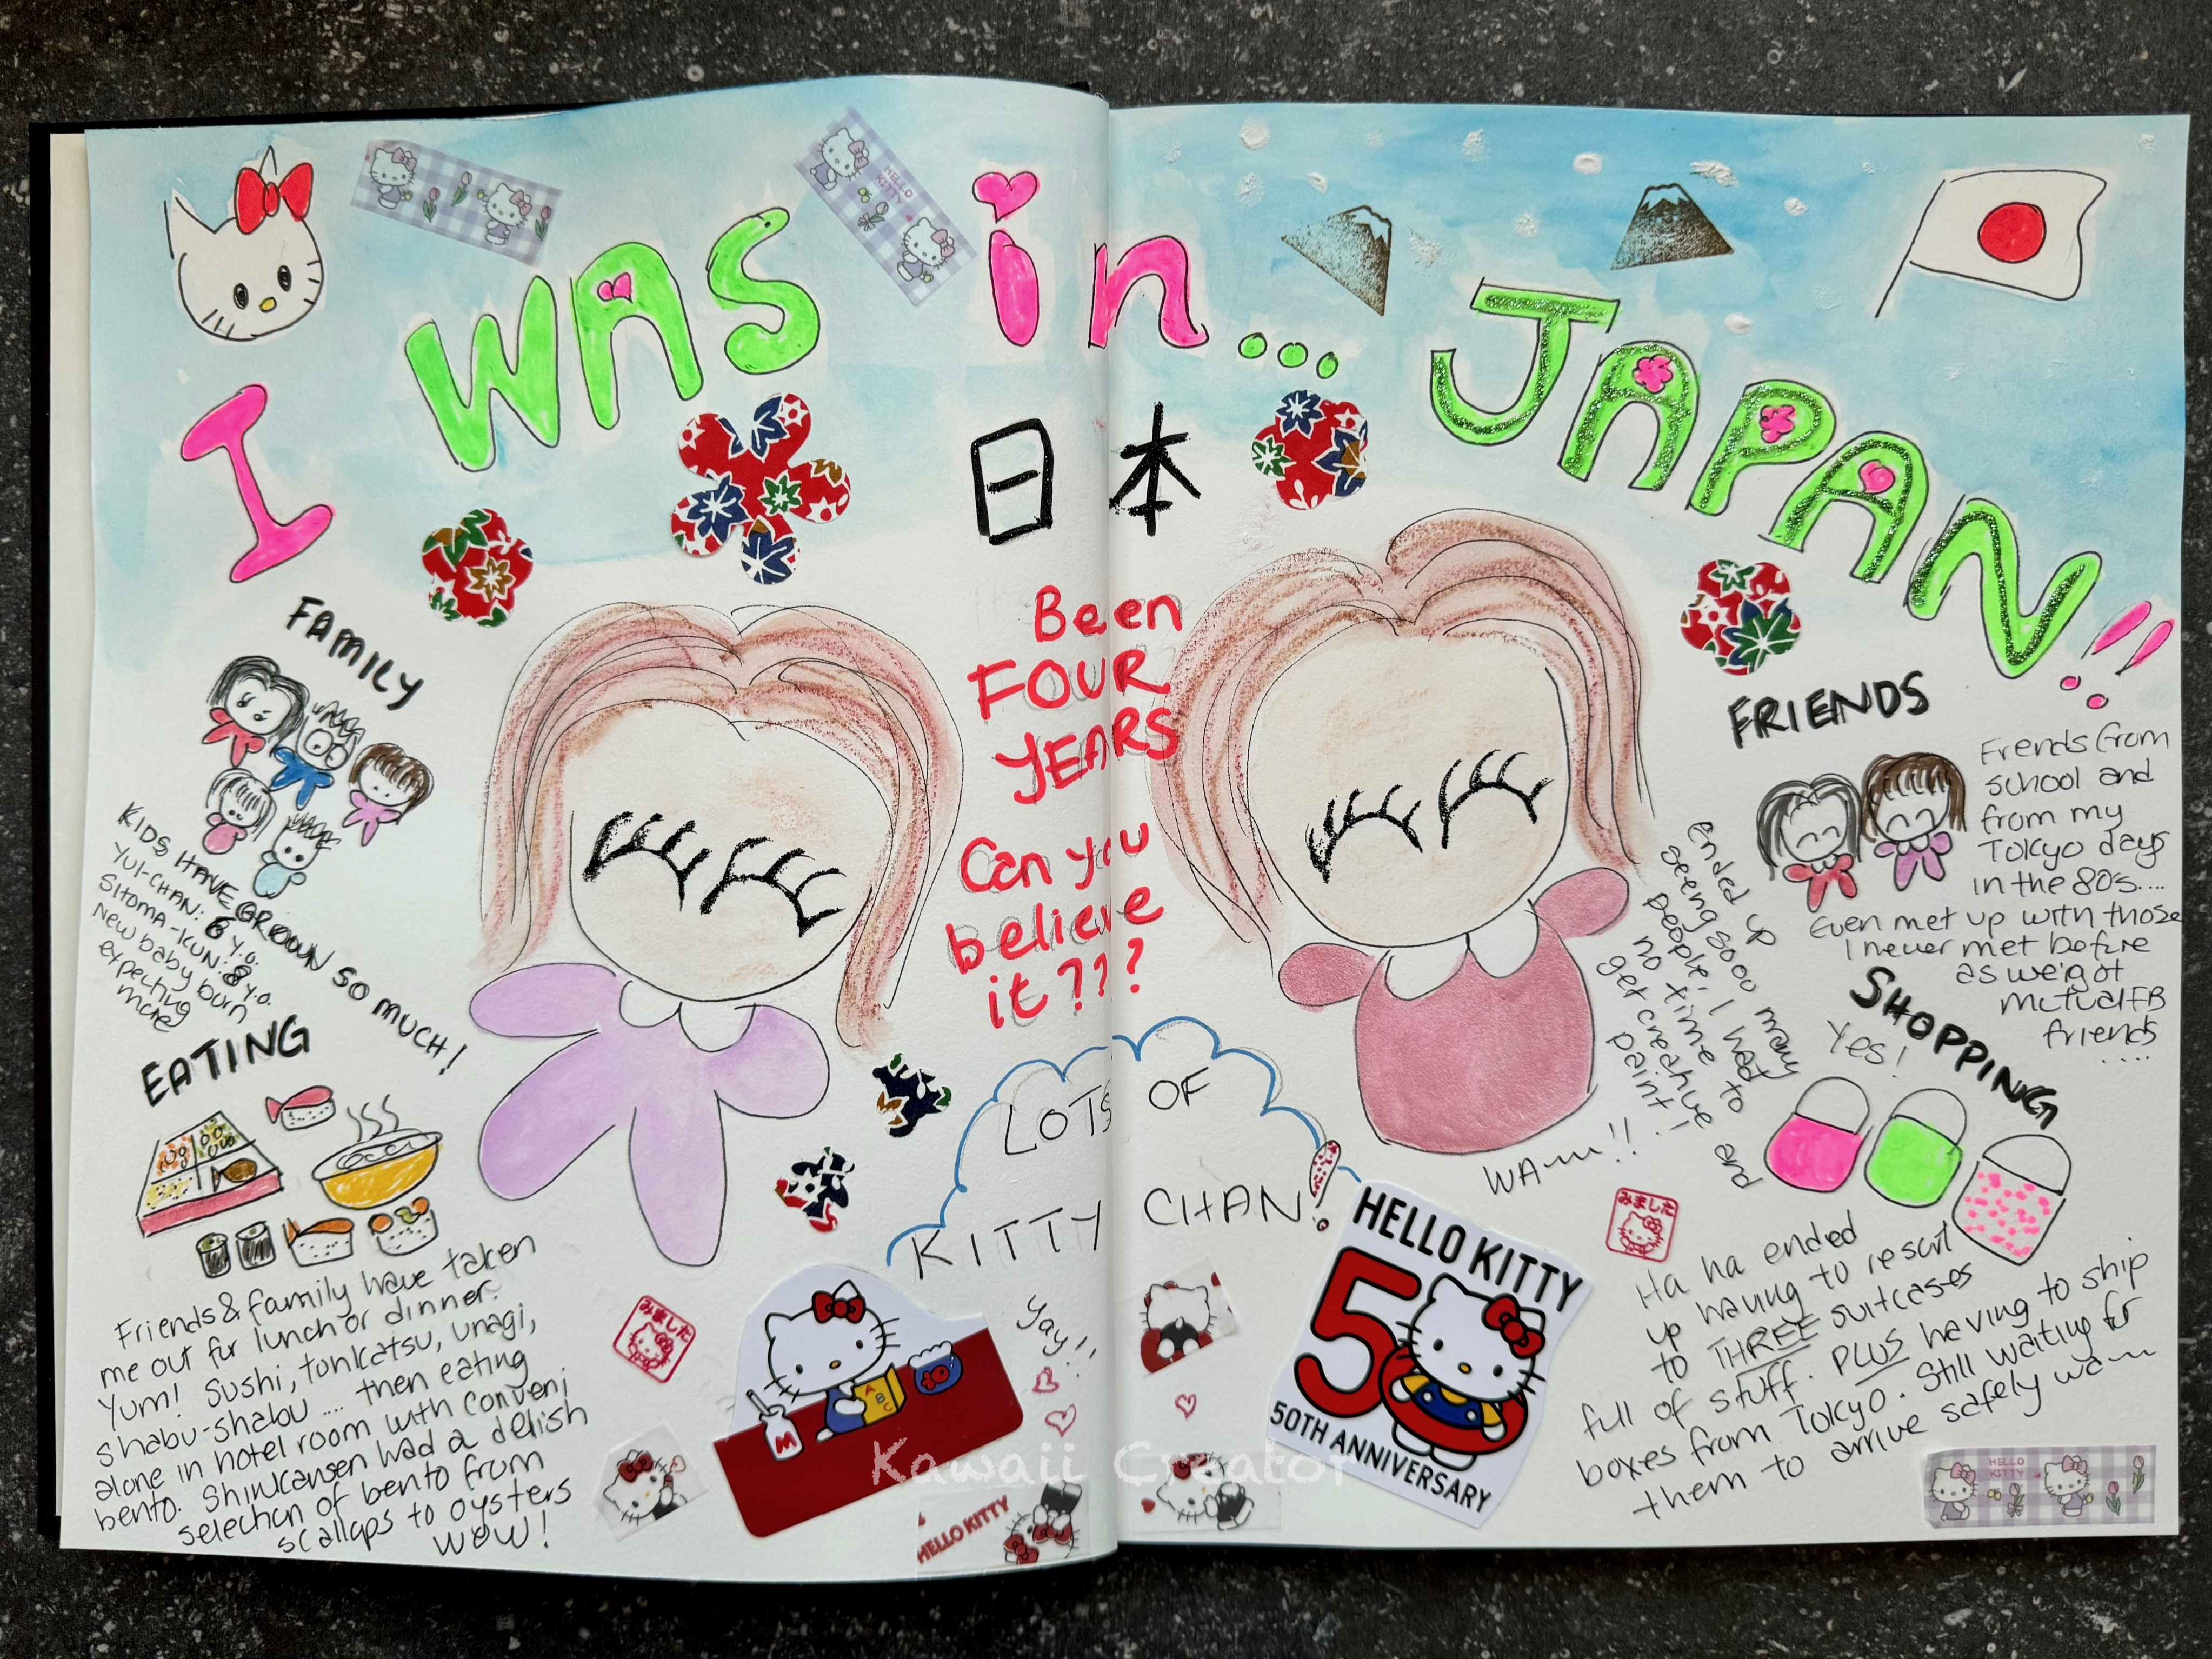 I WAS in... JAPAN!!
日本
Been
FOUR
YEARS
Can you
believe
it???
FAMILY
KIDS HAVE GROWN SO MUCH!
YUI-CHAN: 6 y.o.
SHOMA-KUN: 8 y.o.
New baby burn
expecting
more
EATING
Friends & family have taken
me out for lunch or dinner.
Yum! Sushi, tonkatsu, unagi,
shabu-shabu .... then eating
alone in hotel room with conveni
bento. Shinkansen had a delish
selection of bento from
scallops to oysters
WOW!
LOTS OF
KITTY CHAN!
Yay!!
みました
M
ABC
HELLO KITTY
HELLO KITTY
50
50TH ANNIVERSARY
Kawaii Creator
FRIENDS
Friends from
school and
from my
Tokyo days
in the 80s....
Even met up with those
I never met before
as we'got
mutual FB
friends
....
ended up
seeing sooo many
people, I had
no time to
get creative and
paint!
WA~~!!
SHOPPING
Yes!
みました
Ha ha ended
up having to resort
to THREE suitcases
full of stuff. PLUS having to ship
boxes from Tokyo. Still waiting for
them to arrive safely wa~~
HELLO
KITTY
HELLO
KITTY